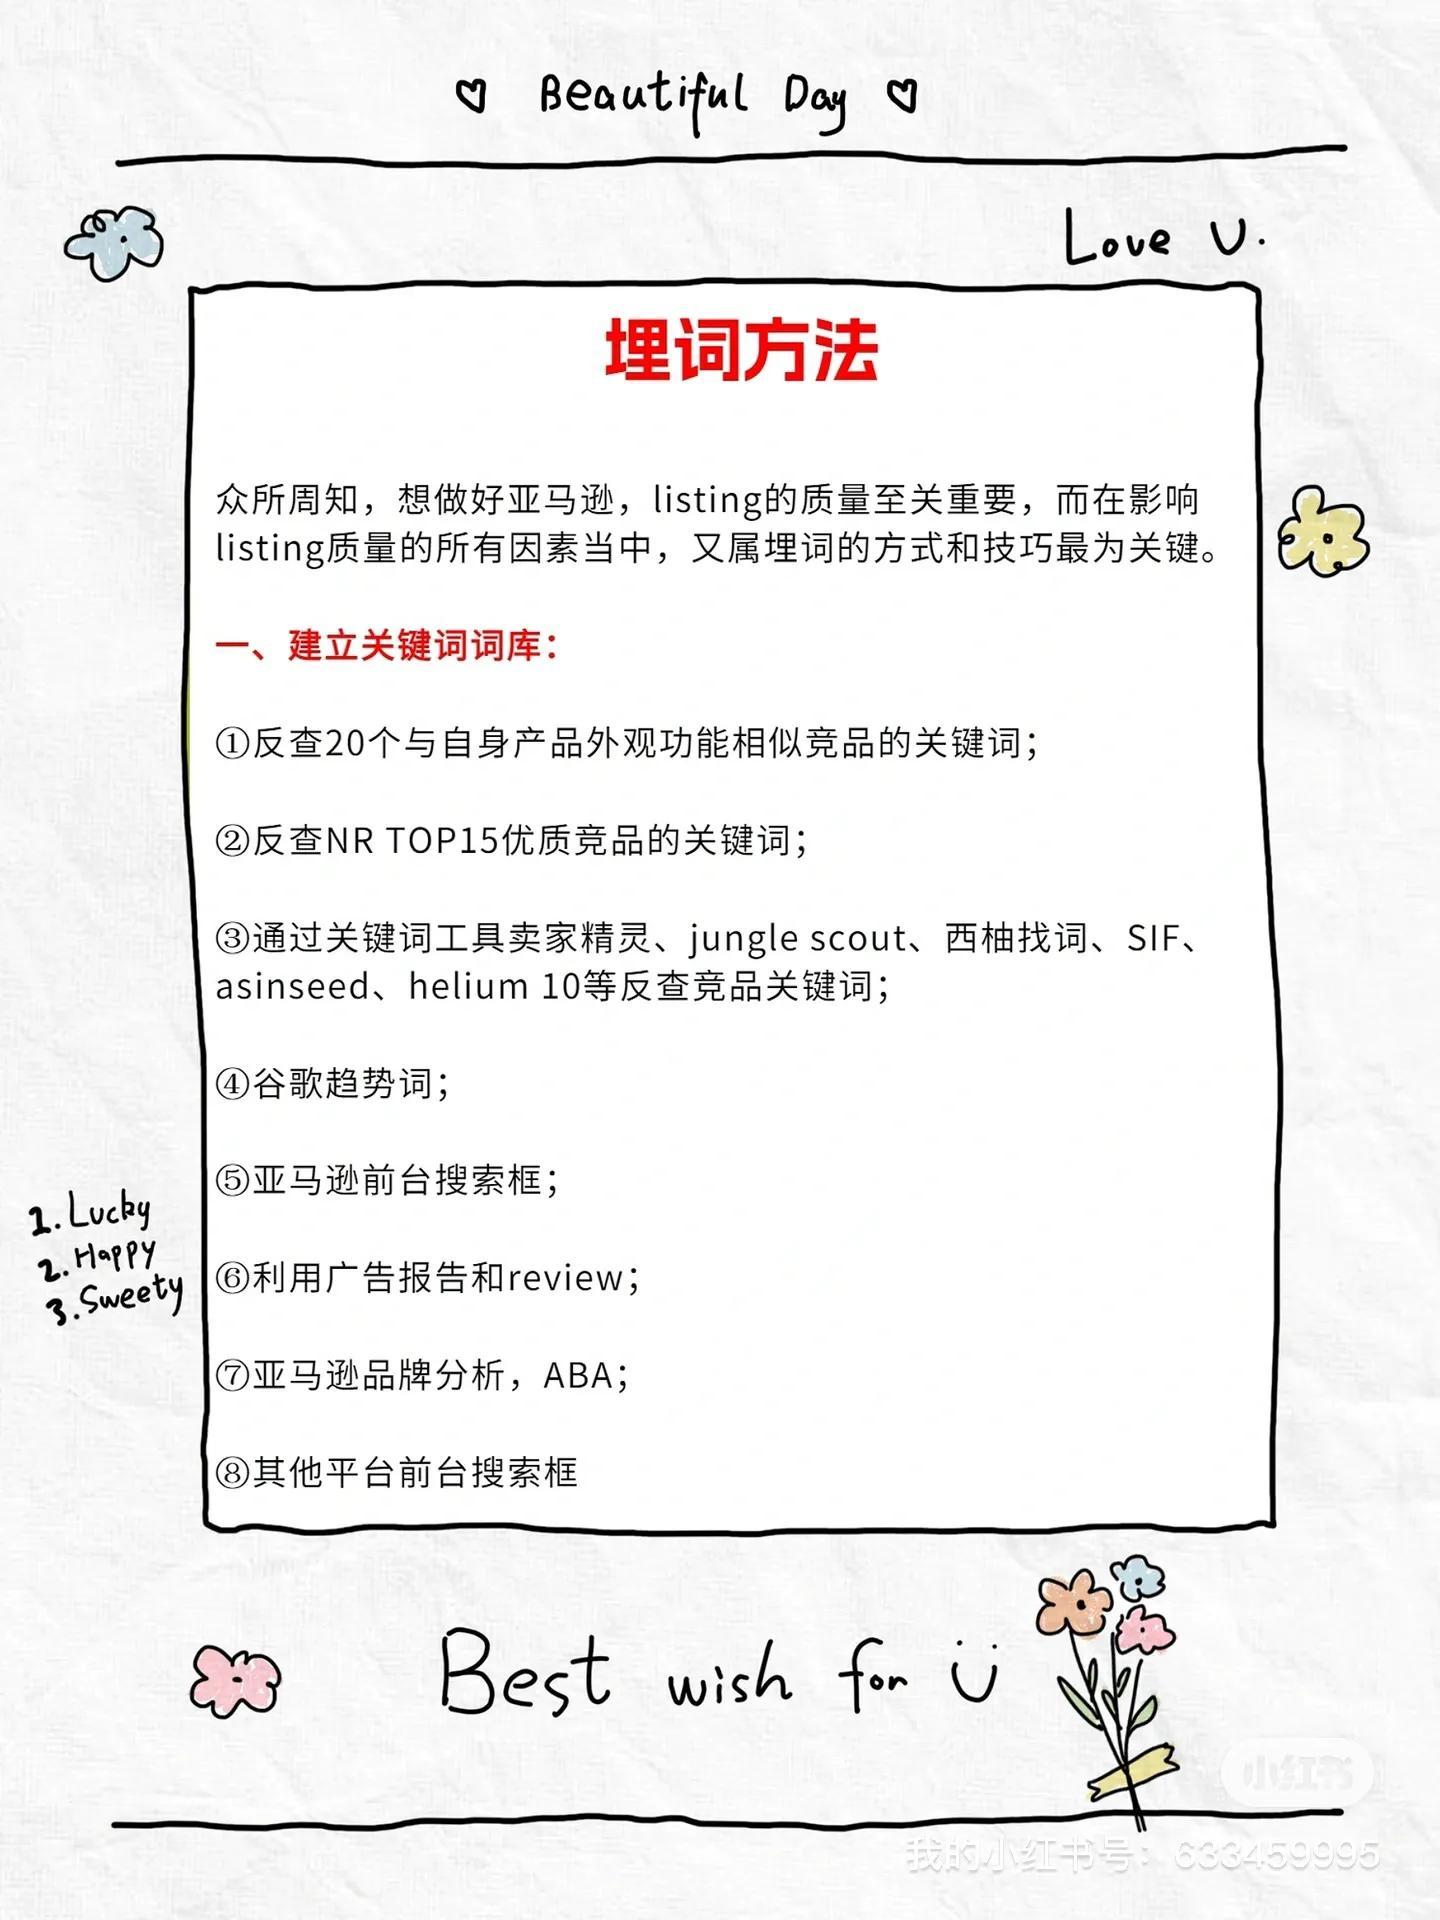 Beautiful Day
Love U.
埋词方法
众所周知，想做好亚马逊，listing的质量至关重要，而在影响
listing质量的所有因素当中，又属埋词的方式和技巧最为关键。
一、建立关键词词库：
①反查20个与自身产品外观功能相似竞品的关键词；
②反查NR TOP15优质竞品的关键词；
③通过关键词工具卖家精灵、jungle scout、西柚找词、SIF、
asinseed、helium 10等反查竞品关键词；
④谷歌趋势词；
⑤亚马逊前台搜索框；
1. Lucky
2. Happy
3. Sweety
⑥利用广告报告和review；
⑦亚马逊品牌分析，ABA；
⑧其他平台前台搜索框
Best wish for Ü
小红书
我的小红书号：633459995